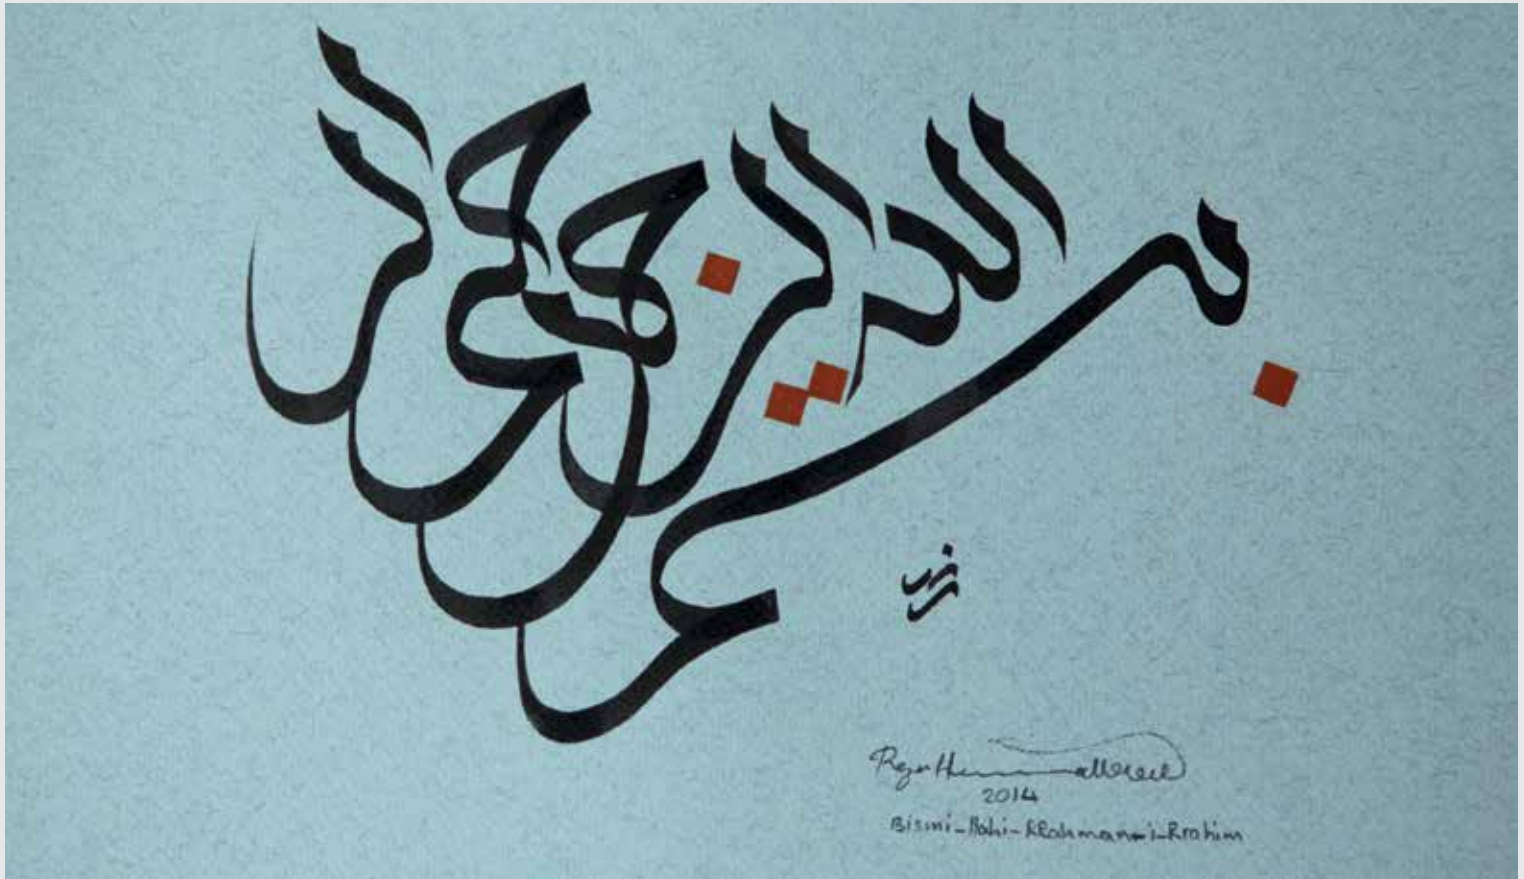 بسم الله الرحمن الرحيم
2014
Bismi_llahi_RRahman_i_Rrahim